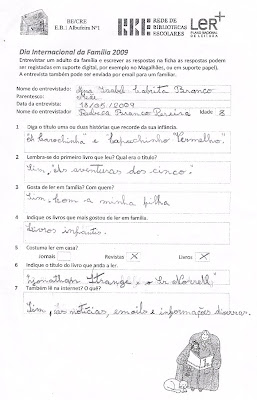 BE/CRE
E.B.1 Albufeira Nº1
REDE DE
BIBLIOTECAS
ESCOLARES
LER+
PLANO NACIONAL
DE LEITURA
Dia Internacional da Família 2009
Entrevistar um adulto da família e escrever as respostas na ficha as respostas podem
ser registadas em suporte digital, por exemplo no Magalhães, ou em suporte papel).
A entrevista também pode ser enviada por email para um familiar.
Nome do entrevistado: Ana Isabel Cabrita Branco
Parentesco: Mãe
Data da entrevista: 18/05/2009
Nome do entrevistador: Rebeca Branco Pereira Idade 8
1 Diga o título uma ou duas histórias que recorde da sua infância.
A Carochinha e Capuchinho Vermelho.
2 Lembra-se do primeiro livro que leu? Qual era o título?
Sim, "As aventuras dos cinco."
3 Gosta de ler em família? Com quem?
Sim, com a minha filha
4 Indique os livros que mais gostou de ler em família.
Livros infantis.
5 Costuma ler em casa?
Jornais Revistas X Livros X
6 Indique o título do livro que anda a ler.
"Jonathan Strange e o Sr Norrell"
7 Também lê na internet? O quê?
Sim, as notícias, emails e informações diversas.